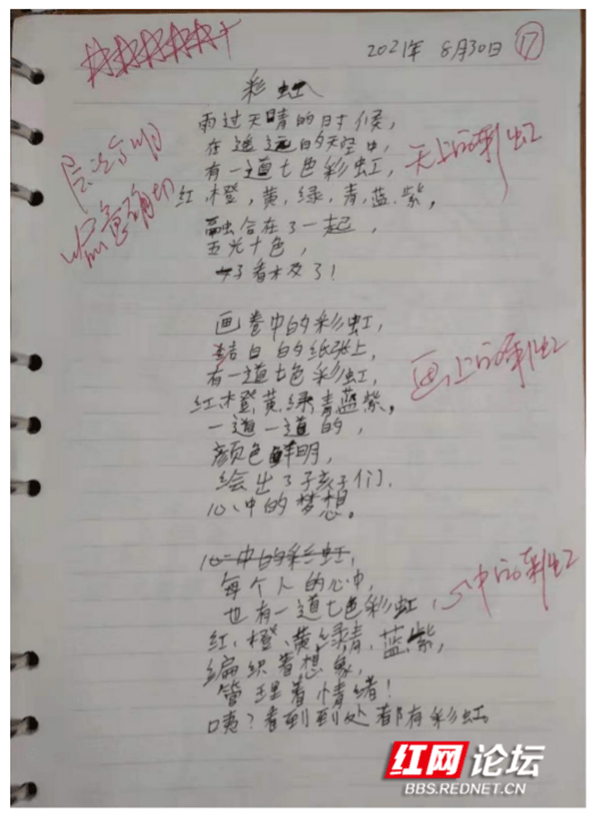 2021年 8月30日 17
彩虹
雨过天晴的时候，
在遥远的天空中，
有一道七色彩虹，
天上的彩虹
红，橙，黄，绿，青，蓝，紫，
融合在了一起，
五光十色，
好看极了！
层次分明
寓意确切
画卷中的彩虹，
洁白的纸张上，
有一道七色彩虹，
画上的彩虹
红、橙、黄、绿、青、蓝、紫，
一道一道的，
颜色鲜明，
绘出了孩子们，
心中的梦想。
心中的彩虹，
每个人的心中，
也有一道七色彩虹，
心中的彩虹
红、橙、黄、绿、青、蓝、紫，
编织着想象，
管理着情绪！
咦？看到到处都有彩虹。
红网论坛
BBS.REDNET.CN